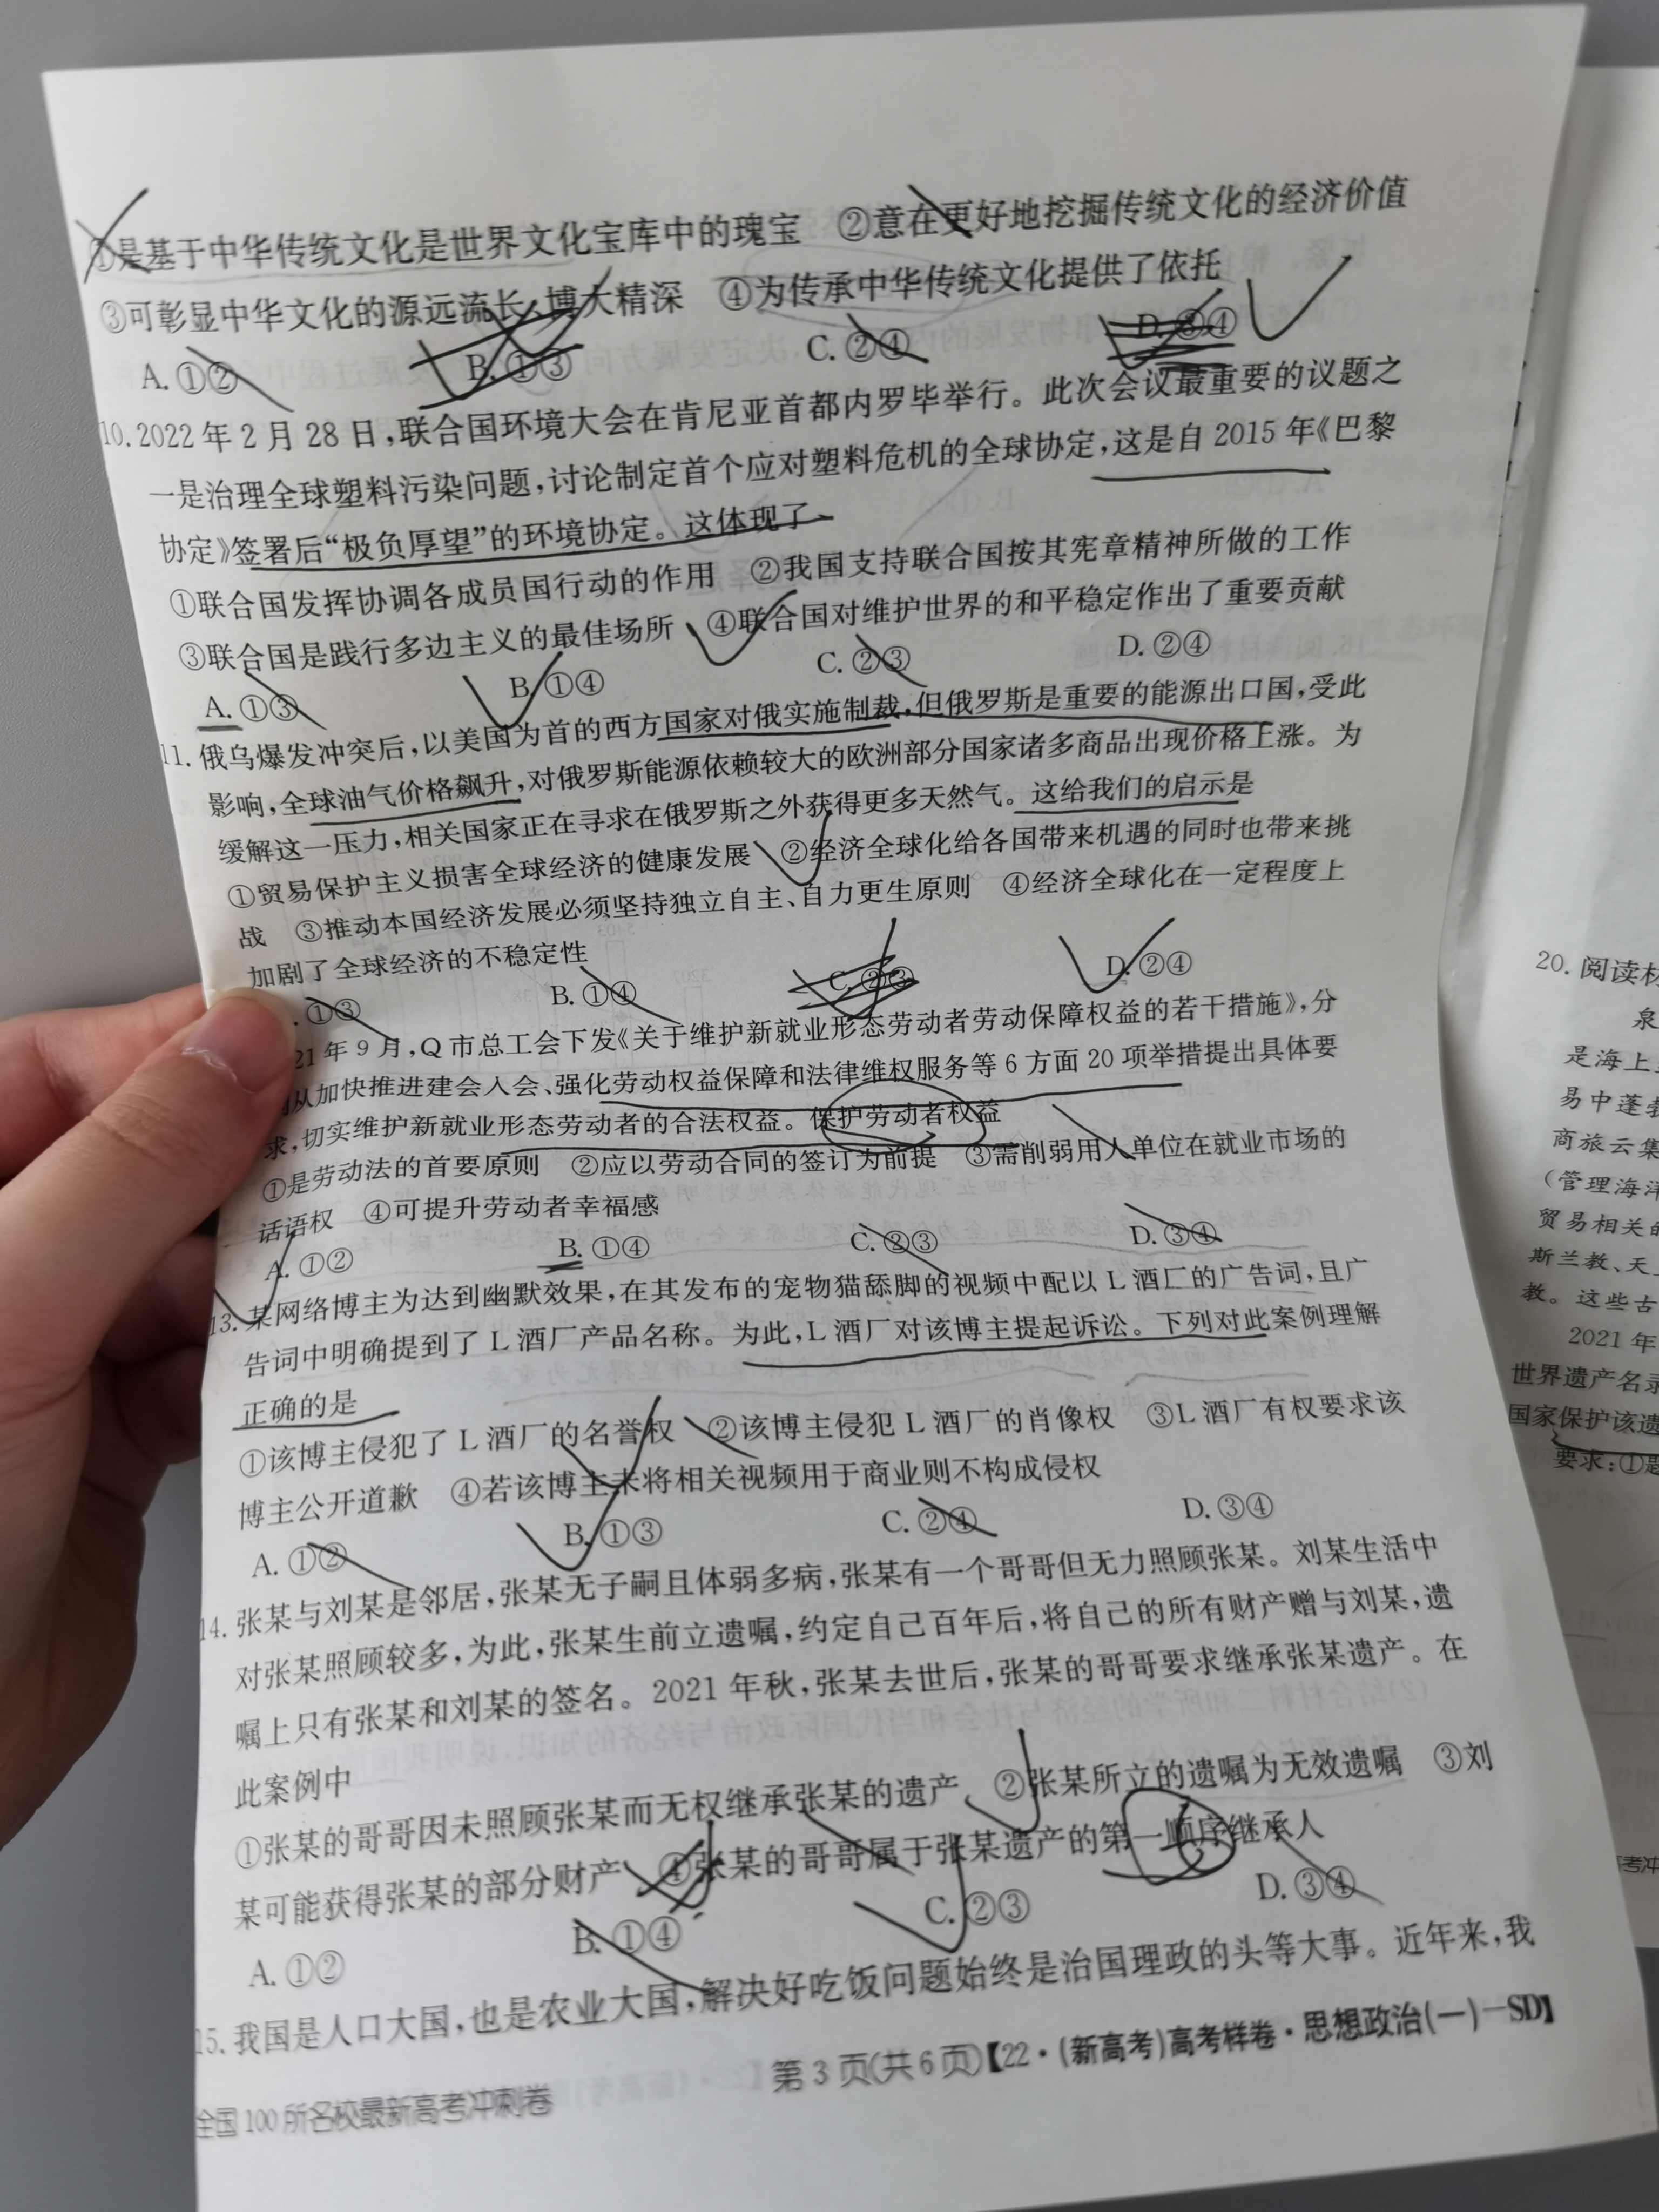 ①是基于中华传统文化是世界文化宝库中的瑰宝 ②意在更好地挖掘传统文化的经济价值
③可彰显中华文化的源远流长、博大精深 ④为传承中华传统文化提供了依托
A. ①② B. ①③ C. ②④ D. ③④
10. 2022 年 2 月 28 日,联合国环境大会在肯尼亚首都内罗毕举行。此次会议最重要的议题之
一是治理全球塑料污染问题,讨论制定首个应对塑料危机的全球协定,这是自 2015 年《巴黎
协定》签署后“极负厚望”的环境协定。这体现了
①联合国发挥协调各成员国行动的作用 ②我国支持联合国按其宪章精神所做的工作
③联合国是践行多边主义的最佳场所 ④联合国对维护世界的和平稳定作出了重要贡献
A. ①③ B. ①④ C. ②③ D. ②④
11. 俄乌爆发冲突后,以美国为首的西方国家对俄实施制裁,但俄罗斯是重要的能源出口国,受此
影响,全球油气价格飙升,对俄罗斯能源依赖较大的欧洲部分国家诸多商品出现价格上涨。为
缓解这一压力,相关国家正在寻求在俄罗斯之外获得更多天然气。这给我们的启示是
①贸易保护主义损害全球经济的健康发展 ②经济全球化给各国带来机遇的同时也带来挑
战 ③推动本国经济发展必须坚持独立自主、自力更生原则 ④经济全球化在一定程度上
加剧了全球经济的不稳定性
. ①③ B. ①④ C. ②③ D. ②④
21 年 9 月,Q 市总工会下发《关于维护新就业形态劳动者劳动保障权益的若干措施》,分
从加快推进建会入会、强化劳动权益保障和法律维权服务等 6 方面 20 项举措提出具体要
求,切实维护新就业形态劳动者的合法权益。保护劳动者权益
①是劳动法的首要原则 ②应以劳动合同的签订为前提 ③需削弱用人单位在就业市场的
话语权 ④可提升劳动者幸福感
A. ①② B. ①④ C. ②③ D. ③④
13. 某网络博主为达到幽默效果,在其发布的宠物猫舔脚的视频中配以 L 酒厂的广告词,且广
告词中明确提到了 L 酒厂产品名称。为此,L 酒厂对该博主提起诉讼。下列对此案例理解
正确的是
①该博主侵犯了 L 酒厂的名誉权 ②该博主侵犯 L 酒厂的肖像权 ③L 酒厂有权要求该
博主公开道歉 ④若该博主未将相关视频用于商业则不构成侵权
A. ①② B. ①③ C. ②④ D. ③④
14. 张某与刘某是邻居,张某无子嗣且体弱多病,张某有一个哥哥但无力照顾张某。刘某生活中
对张某照顾较多,为此,张某生前立遗嘱,约定自己百年后,将自己的所有财产赠与刘某,遗
嘱上只有张某和刘某的签名。2021 年秋,张某去世后,张某的哥哥要求继承张某遗产。在
此案例中
①张某的哥哥因未照顾张某而无权继承张某的遗产 ②张某所立的遗嘱为无效遗嘱 ③刘
某可能获得张某的部分财产 ④张某的哥哥属于张某遗产的第一顺序继承人
A. ①② B. ①④ C. ②③ D. ③④
15. 我国是人口大国,也是农业大国,解决好吃饭问题始终是治国理政的头等大事。近年来,我
第 3 页(共 6 页)【22·(新高考)高考样卷·思想政治(一)—SD】
全国 100 所名校最新高考冲刺卷
20. 阅读材
泉
是海上
易中蓬
商旅云集
(管理海洋
贸易相关的
斯兰教、天
教。这些古
2021 年
世界遗产名录
国家保护该遗
要求:①